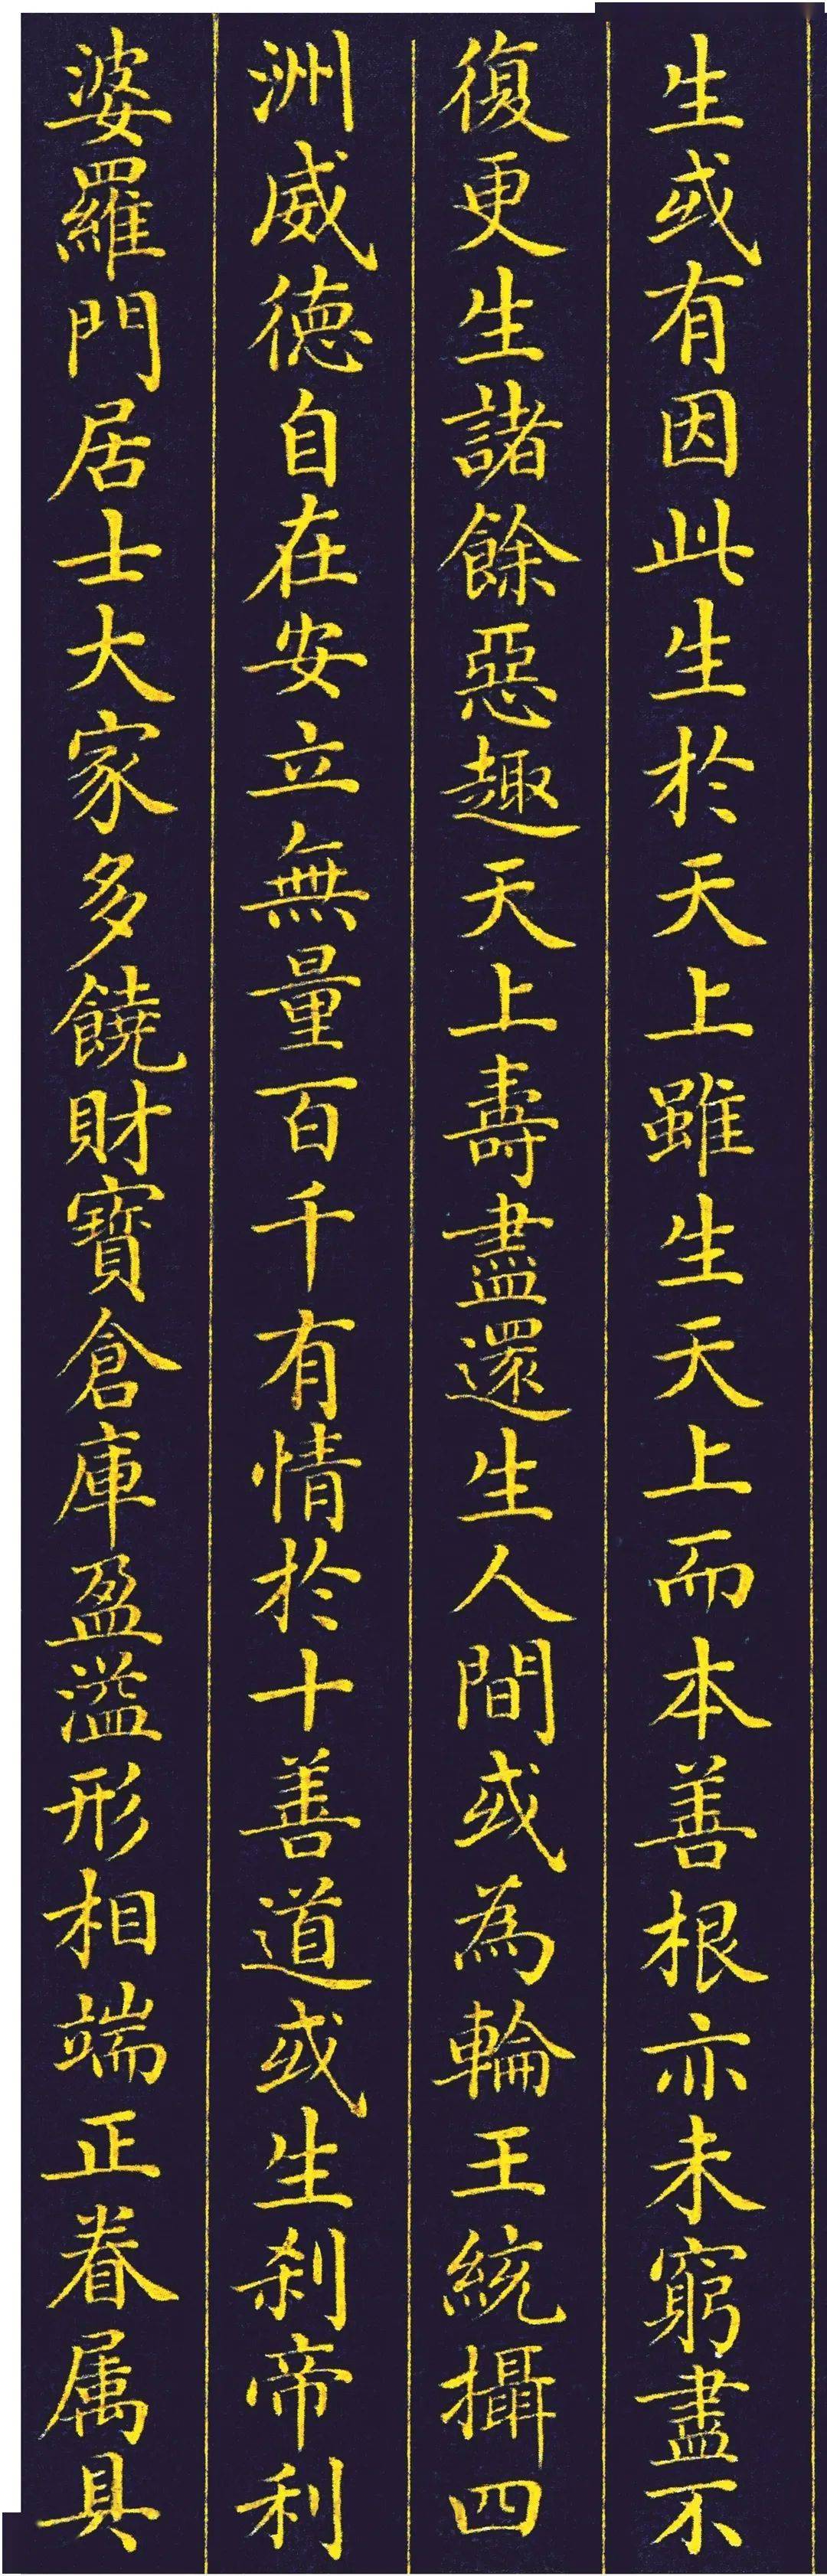 生或有因此生於天上雖生天上而本善根亦未窮盡不
復更生諸餘惡趣天上壽盡還生人間或為輪王統攝四
洲威德自在安立無量百千有情於十善道或生刹帝利
婆羅門居士大家多饒財寶倉庫盈溢形相端正眷属具